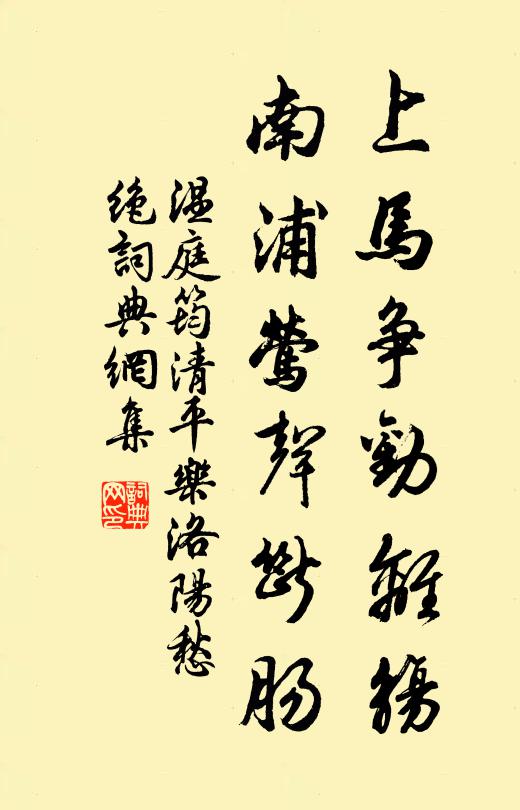 上馬争勸離觴
南浦鶯聲斷腸
温庭筠清平樂洛陽愁
絶詞典網集
詞典网印